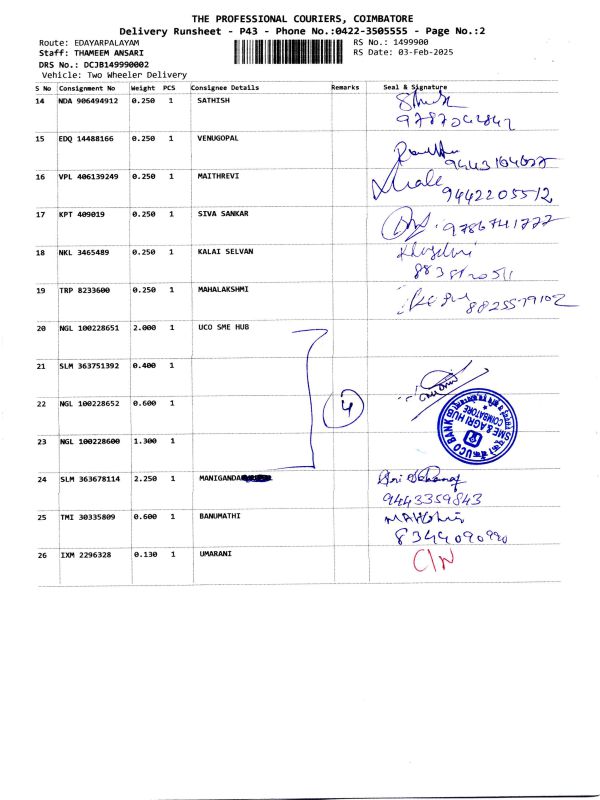 THE PROFESSIONAL COURIERS, COIMBATORE
Delivery Runsheet - P43 - Phone No.:0422-3505555 - Page No.:2
Route: EDAYARPALAYAM RS No.: 1499900
Staff: THAMEEM ANSARI RS Date: 03-Feb-2025
DRS No.: DCJB149990002
Vehicle: Two Wheeler Delivery
S No Consignment No Weight PCS Consignee Details Remarks Seal & Signature
14 NDA 906494912 0.250 1 SATHISH
15 EDQ 14488166 0.250 1 VENUGOPAL
16 VPL 406139249 0.250 1 MAITHREVI
9442205512
17 KPT 409019 0.250 1 SIVA SANKAR
9786741777
18 NKL 3465489 0.250 1 KALAI SELVAN
19 TRP 8233600 0.250 1 MAHALAKSHMI
20 NGL 100228651 2.000 1 UCO SME HUB
21 SLM 363751392 0.400 1
22 NGL 100228652 0.600 1 4
UCO BANK SME & AGRI HUB COIMBATORE
23 NGL 100228600 1.300 1
24 SLM 363678114 2.250 1 MANIGANDA
9443359843
25 TMI 30335809 0.600 1 BANUMATHI
8344090990
26 IXM 2296328 0.130 1 UMARANI C/N